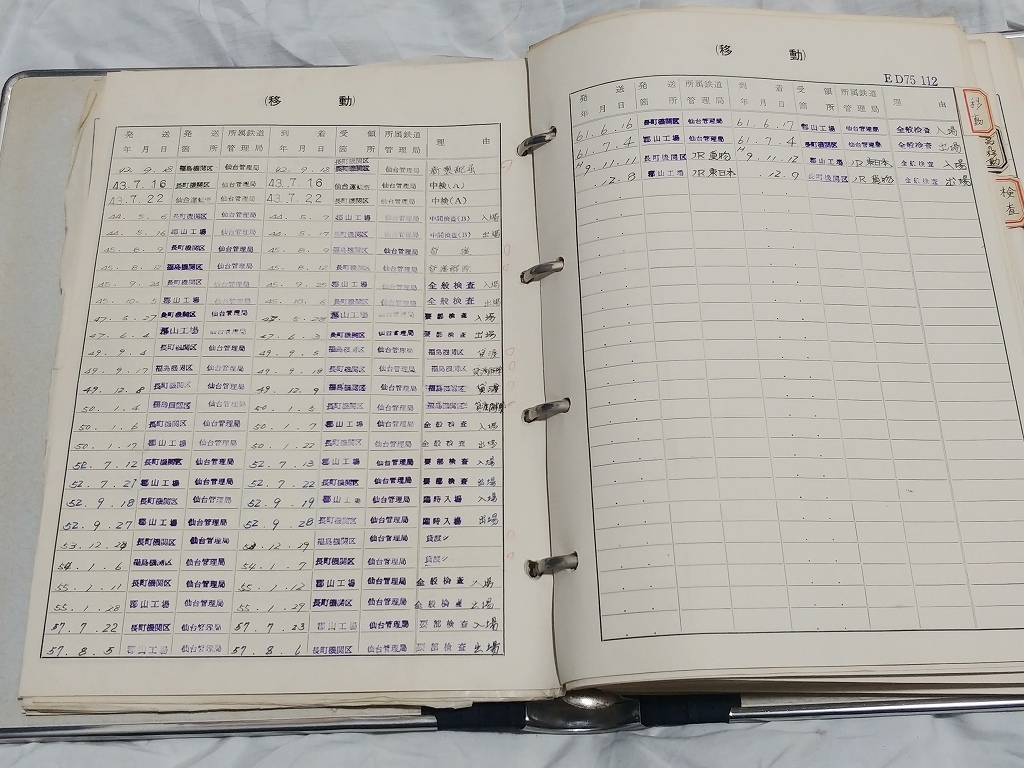 (移 動)
発送 発送 所属鉄道 到着 受領 所属鉄道 理由
年月日 箇所 管理局 年月日 箇所 管理局
長町機関区
42.9.18 福島機関区 仙台管理局 42.9.18 長町機関区 仙台管理局
43.7.16 長町機関区 仙台管理局 43.7.16 仙台運転所 仙台管理局 中検(A)
43.7.22 仙台運転所 仙台管理局 43.7.22 長町機関区 仙台管理局 中検(A)
44.5.6 長町機関区 仙台管理局 44.5.7 郡山工場 仙台管理局 中間検査(B) 入場
44.5.16 郡山工場 仙台管理局 44.5.17 長町機関区 仙台管理局 中間検査(B) 出場
45.8.9 長町機関区 仙台管理局 45.8.9 福島機関区 仙台管理局
45.8.12 福島機関区 仙台管理局 45.8.12 長町機関区 仙台管理局
45.9.24 長町機関区 仙台管理局 45.9.25 郡山工場 仙台管理局 全般検査 入場
45.10.5 郡山工場 仙台管理局 45.10.6 長町機関区 仙台管理局 全般検査 出場
47.5.27 長町機関区 仙台管理局 47.5.28 郡山工場 仙台管理局 要部検査 入場
47.6.4 郡山工場 仙台管理局 47.6.3 長町機関区 仙台管理局 要部検査 出場
49.9.4 長町機関区 仙台管理局 49.9.5 福島機関区 仙台管理局 福島機関区 貸渡
49.9.17 福島機関区 仙台管理局 49.9.18 長町機関区 仙台管理局 福島機関区
49.12.8 長町機関区 仙台管理局 49.12.9 福島機関区 仙台管理局 福島機関区 貸渡
50.1.4 福島機関区 仙台管理局 50.1.5 長町機関区 仙台管理局 福島機関区
50.1.6 長町機関区 仙台管理局 50.1.7 郡山工場 仙台管理局 全般検査 入場
50.1.17 郡山工場 仙台管理局 50.1.22 長町機関区 仙台管理局 全般検査 出場
52.7.12 長町機関区 仙台管理局 52.7.13 郡山工場 仙台管理局 要部検査 入場
52.7.21 郡山工場 仙台管理局 52.7.22 長町機関区 仙台管理局 要部検査 出場
52.9.18 長町機関区 仙台管理局 52.9.19 郡山工場 仙台管理局 臨時入場 入場
52.9.27 郡山工場 仙台管理局 52.9.28 長町機関区 仙台管理局 臨時入場 出場
53.12.28 長町機関区 仙台管理局 53.12.29 福島機関区 仙台管理局
54.1.6 福島機関区 仙台管理局 54.1.7 長町機関区 仙台管理局
55.1.11 長町機関区 仙台管理局 55.1.12 郡山工場 仙台管理局 全般検査 入場
55.1.28 郡山工場 仙台管理局 55.1.29 長町機関区 仙台管理局 全般検査 出場
57.7.22 長町機関区 仙台管理局 57.7.23 郡山工場 仙台管理局 要部検査 入場
57.8.5 郡山工場 仙台管理局 57.8.6 長町機関区 仙台管理局 要部検査 出場
(移 動)
ED75 112
発送 発送 所属鉄道 到着 受領 所属鉄道 理由
年月日 箇所 管理局 年月日 箇所 管理局
61.6.16 長町機関区 仙台管理局 61.6.17 郡山工場 仙台管理局 全般検査 入場
61.7.4 郡山工場 仙台管理局 61.7.4 長町機関区 仙台管理局 全般検査 出場
H9.11.11 長町機関区 JR貨物 H9.11.12 郡山工場 JR東日本 全般検査 入場
.12.8 郡山工場 JR東日本 .12.9 長町機関区 JR貨物 全般検査 出場
移動
検査